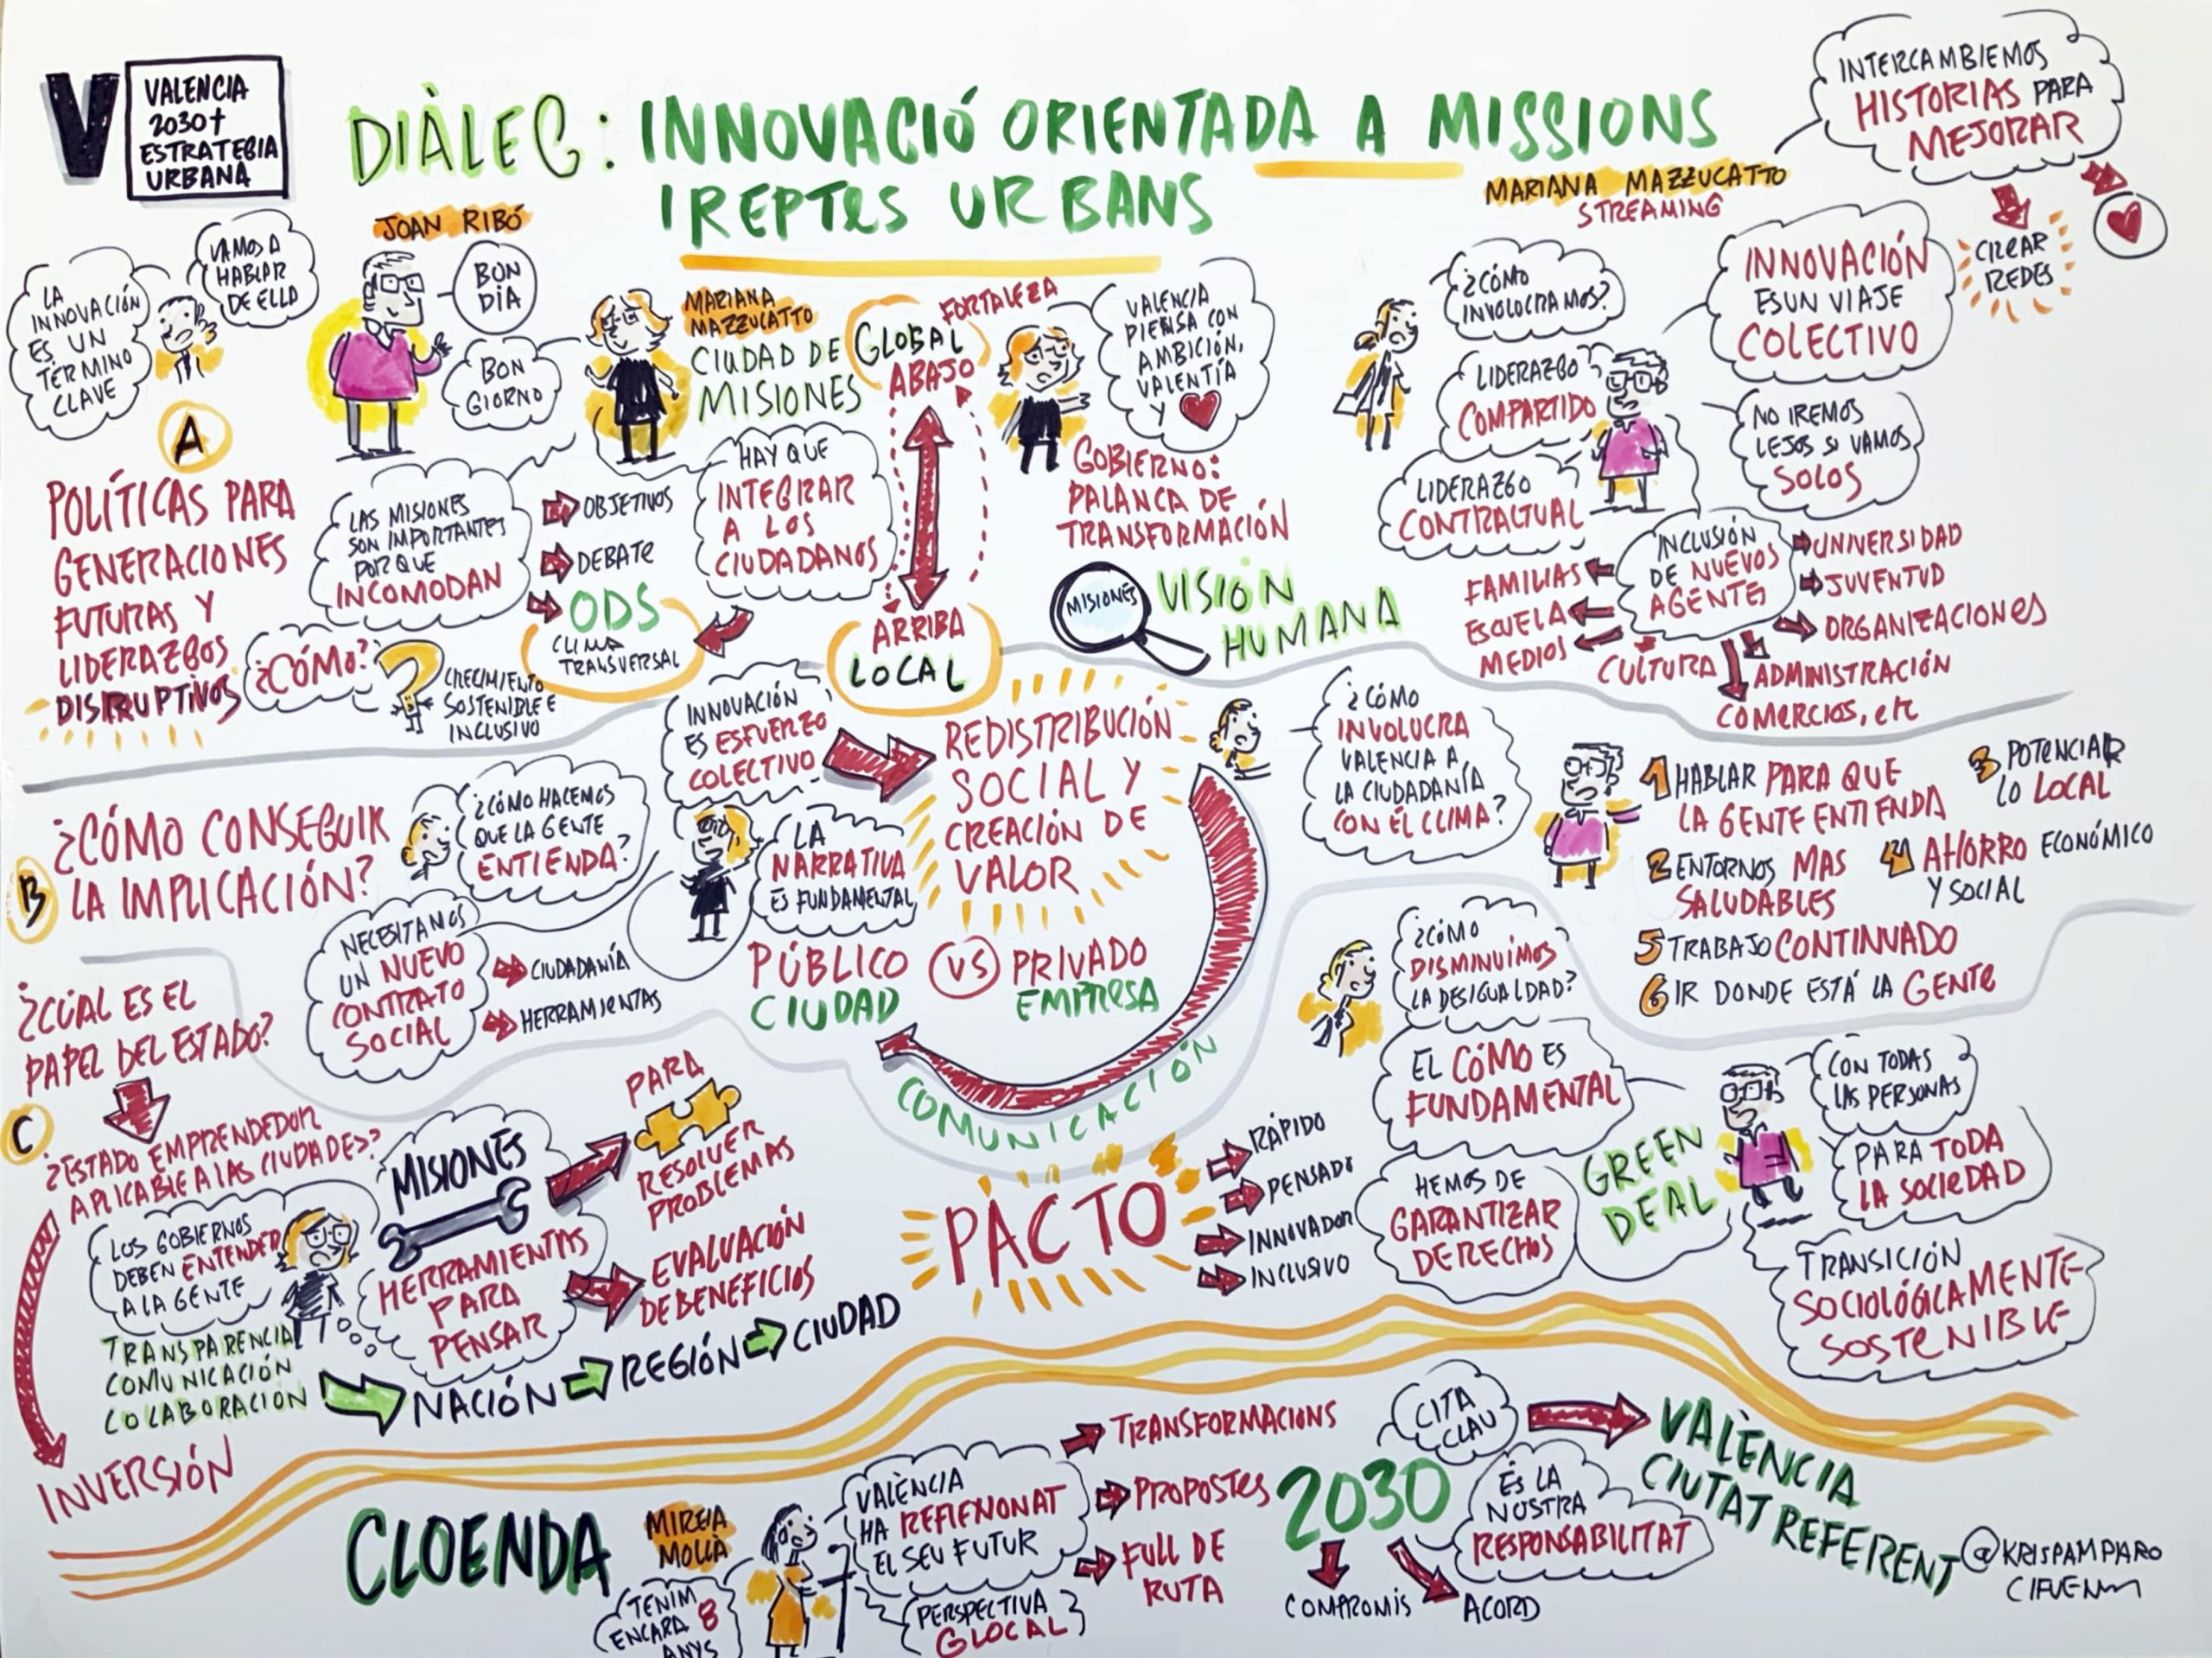 V
VALENCIA
2030+
ESTRATEGIA
URBANA
DIÀLEG: INNOVACIÓ ORIENTADA A MISSIONS
I REPTES URBANS
JOAN RIBÓ
LA
INNOVACIÓN
ES UN
TÉRMINO
CLAVE
VAMOS A
HABLAR
DE ELLA
BON
DIA
BON
GIORNO
MARIANA
MAZZUCATTO
CIUDAD DE
MISIONES
GLOBAL
ABAJO
FORTALEZA
VALENCIA
PIENSA CON
AMBICIÓN,
VALENTÍA
Y
GOBIERNO:
PALANCA DE
TRANSFORMACIÓN
ARRIBA
LOCAL
A
POLÍTICAS PARA
GENERACIONES
FUTURAS Y
LIDERAZGOS
DISRUPTIVOS
¿CÓMO?
?
CRECIMIENTO
SOSTENIBLE E
INCLUSIVO
LAS MISIONES
SON IMPORTANTES
POR QUE
INCOMODAN
OBJETIVOS
DEBATE
ODS
CLIMA
TRANSVERSAL
HAY QUE
INTEGRAR
A LOS
CIUDADANOS
MISIONES
VISIÓN
HUMANA
MARIANA MAZZUCATTO
STREAMING
INTERCAMBIEMOS
HISTORIAS PARA
MEJORAR
CREAR
REDES
¿CÓMO
INVOLOCRAMOS?
LIDERAZGO
COMPARTIDO
LIDERAZGO
CONTRACTUAL
INNOVACIÓN
ES UN VIAJE
COLECTIVO
NO IREMOS
LEJOS SI VAMOS
SOLOS
INCLUSIÓN
DE NUEVOS
AGENTES
FAMILIAS
ESCUELA
MEDIOS
CULTURA
UNIVERSIDAD
JUVENTUD
ORGANIZACIONES
ADMINISTRACIÓN
COMERCIOS, etc
B
¿CÓMO CONSEGUIR
LA IMPLICACIÓN?
¿CÓMO HACEMOS
QUE LA GENTE
ENTIENDA?
NECESITAMOS
UN NUEVO
CONTRATO
SOCIAL
CIUDADANÍA
HERRAMIENTAS
INNOVACIÓN
ES ESFUERZO
COLECTIVO
LA
NARRATIVA
ES FUNDAMENTAL
REDISTRIBUCIÓN
SOCIAL Y
CREACIÓN DE
VALOR
PÚBLICO VS PRIVADO
CIUDAD EMPRESA
COMUNICACIÓN
¿CÓMO
INVOLUCRA
VALENCIA A
LA CIUDADANÍA
CON EL CLIMA?
1 HABLAR PARA QUE
LA GENTE ENTIENDA
2 ENTORNOS MAS
SALUDABLES
3 POTENCIAR
LO LOCAL
4 AHORRO ECONÓMICO
Y SOCIAL
5 TRABAJO CONTINUADO
6 IR DONDE ESTÁ LA GENTE
C
¿CUAL ES EL
PAPEL DEL ESTADO?
¿ESTADO EMPRENDEDOR
APLICABLE A LAS CIUDADES?
LOS GOBIERNOS
DEBEN ENTENDER
A LA GENTE
TRANSPARENCIA
COMUNICACIÓN
COLABORACIÓN
INVERSIÓN
MISIONES
HERRAMIENTAS
PARA
PENSAR
PARA
RESOLVER
PROBLEMAS
EVALUACIÓN
DE BENEFICIOS
NACIÓN REGIÓN CIUDAD
PACTO
RÁPIDO
PENSADO
INNOVADOR
INCLUSIVO
¿CÓMO
DISMINUIMOS
LA DESIGUALDAD?
EL CÓMO ES
FUNDAMENTAL
HEMOS DE
GARANTIZAR
DERECHOS
GREEN
DEAL
CON TODAS
LAS PERSONAS
PARA TODA
LA SOCIEDAD
TRANSICIÓN
SOCIOLÓGICAMENTE
SOSTENIBLE
CLOENDA
MIREIA
MOLLÀ
TENIM
ENCARA 8
ANYS
VALÈNCIA
HA REFLEXIONAT
EL SEU FUTUR
PERSPECTIVA
GLOCAL
TRANSFORMACIONS
PROPOSTES
FULL DE
RUTA
2030
COMPROMIS
ACORD
CITA
CLAU
ÉS LA
NOSTRA
RESPONSABILITAT
VALÈNCIA
CIUTAT REFERENT
@KRISPAMPARO